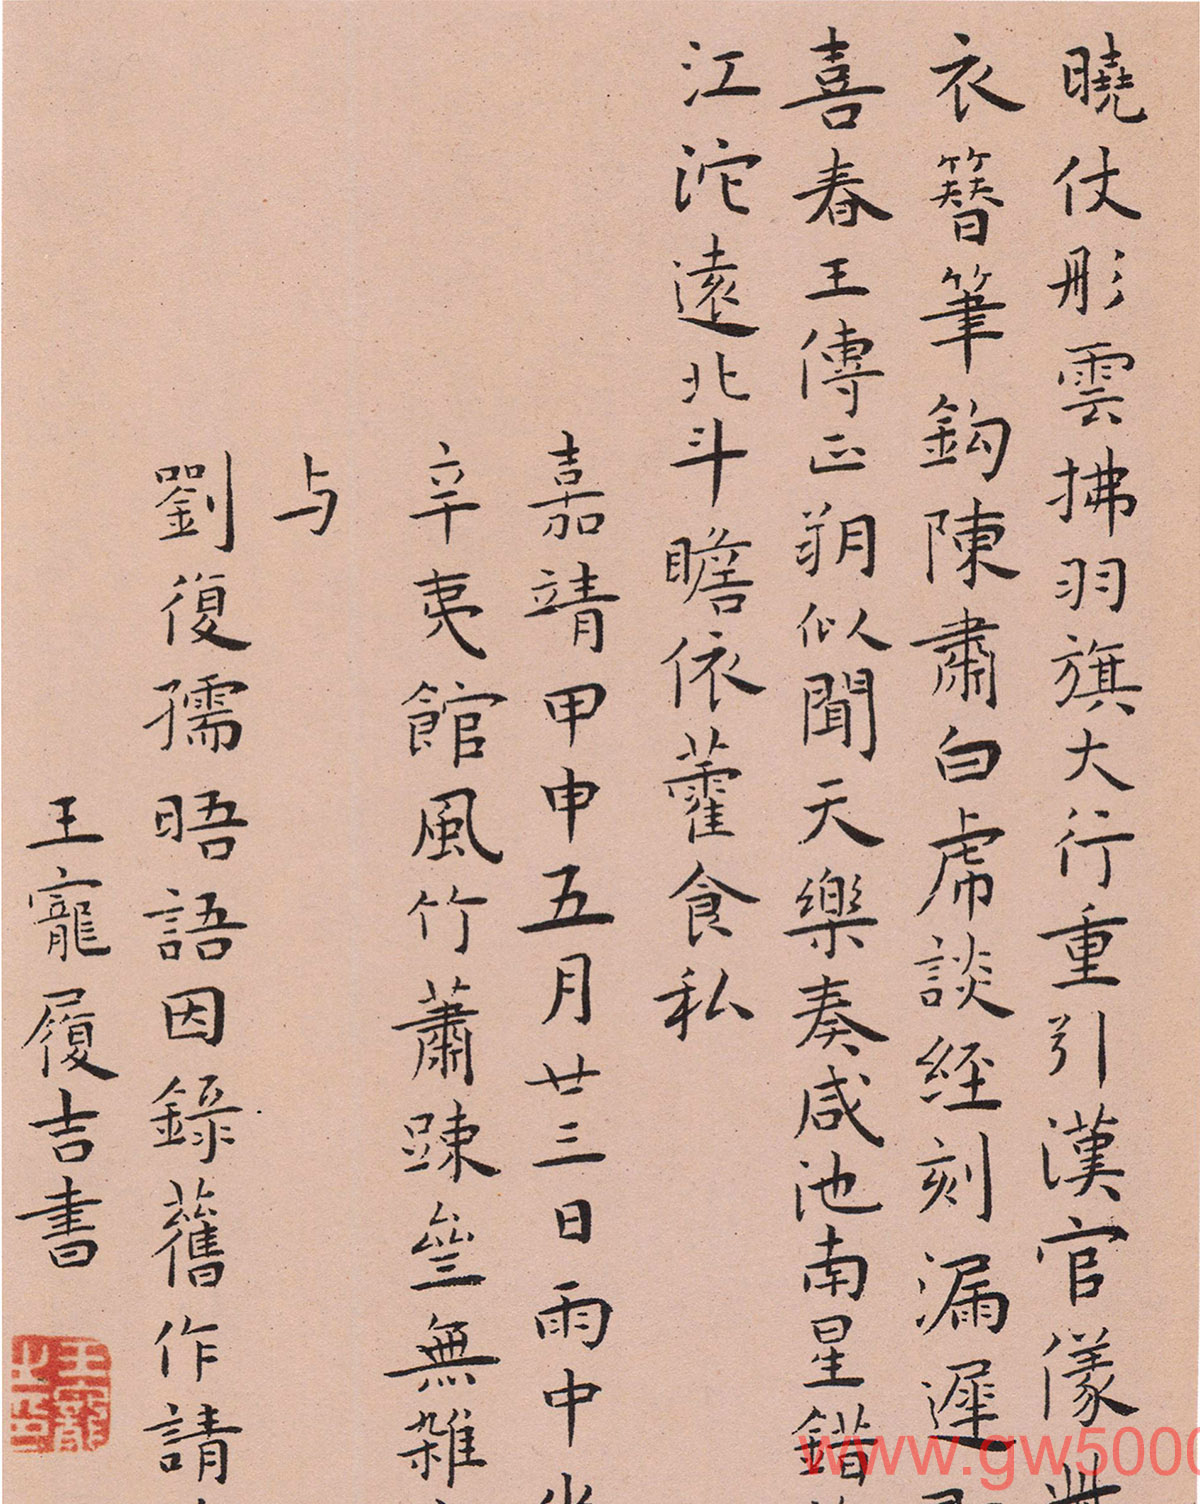 曉仗彤雲拂羽旗大行重引漢官儀
衣簪筆鈎陳肅白虎談經刻漏遲
喜春王傳正朔似聞天樂奏咸池南星錯
江沱遠北斗瞻依藿食私
嘉靖甲申五月廿三日雨中
辛夷館風竹蕭踈壘無雜
与
劉復孺晤語因錄舊作請
王寵履吉書
www.gw5000